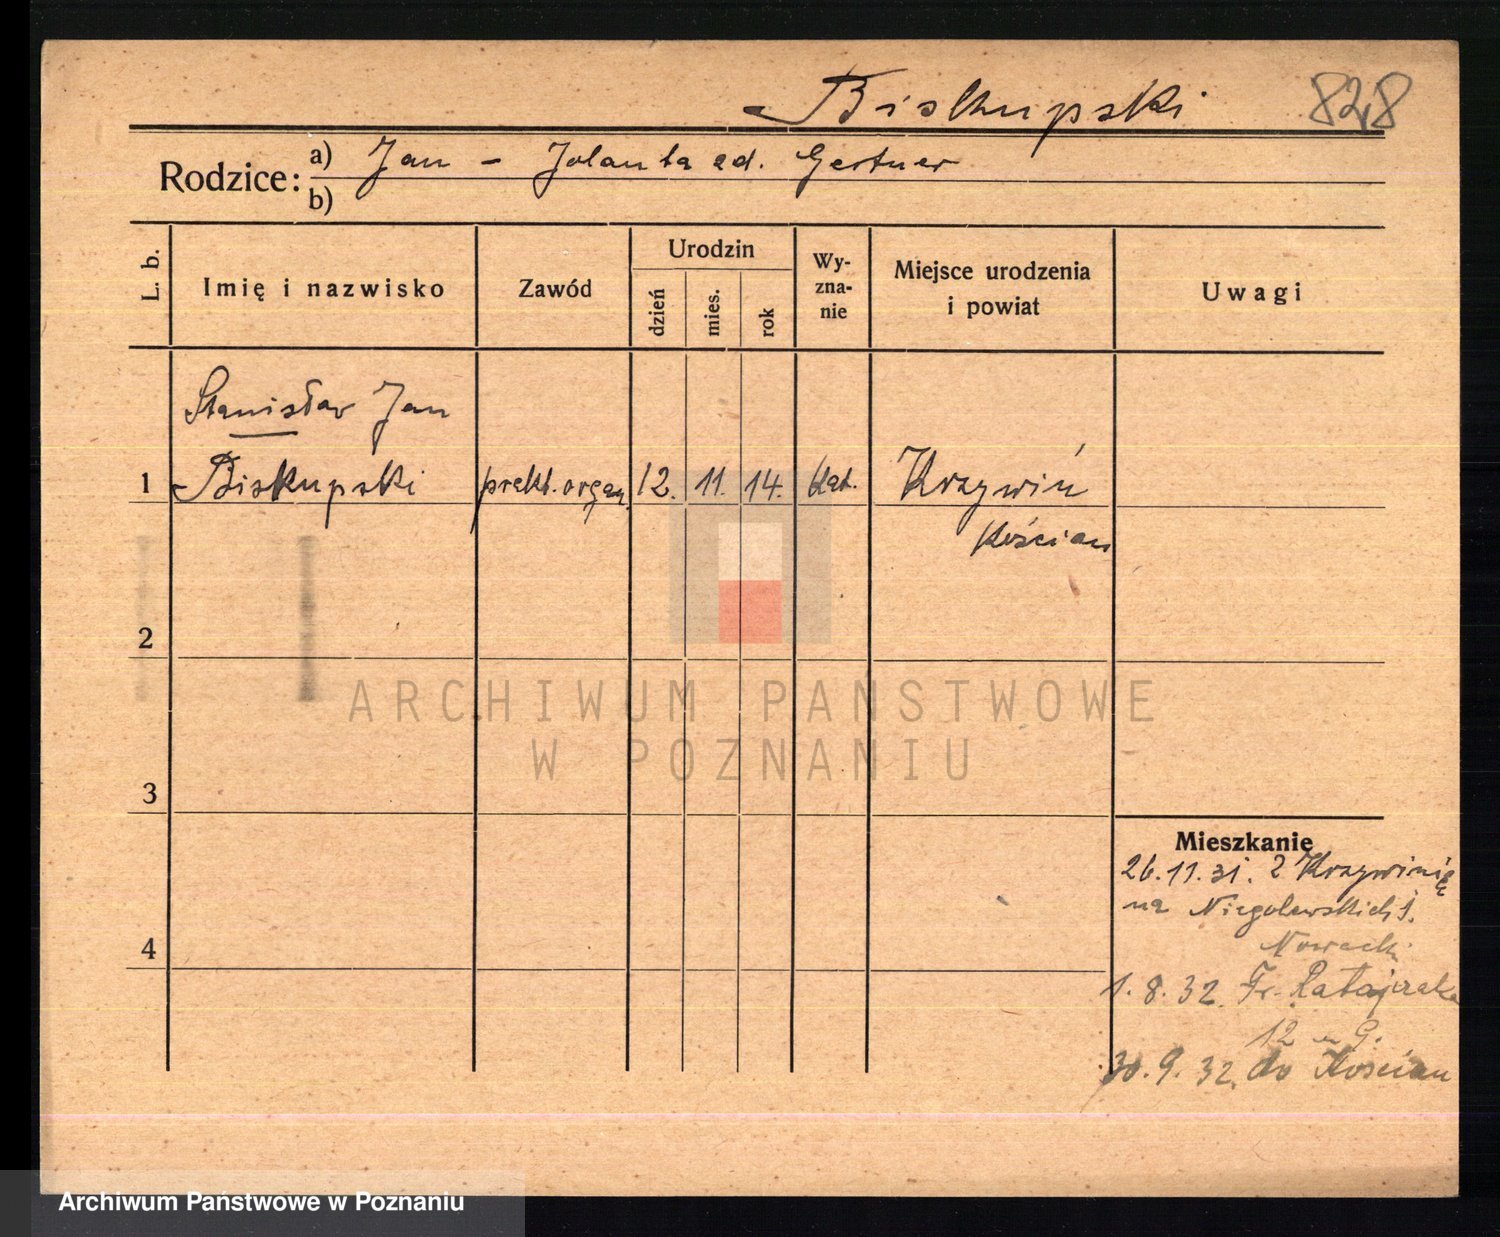 Biskupski 828
Rodzice: a) Jan - Jolanta zd. Gertner
b)
L. b. Imię i nazwisko Zawód Urodzin dzień mies. rok Wyznanie Miejsce urodzenia i powiat Uwagi
Stanisław Jan
1 Biskupski prakt. organ. 12. 11. 14. kat. Krzywiń
Kościan
2
ARCHIWUM PAŃSTWOWE
W POZNANIU
3
Mieszkanie
26.11.31. z Krzywinia
na Niegolewskich 1.
Nowacki
4
1.8.32. Fr. Ratajczaka
12 u G.
30.9.32. do Kościan
Archiwum Państwowe w Poznaniu